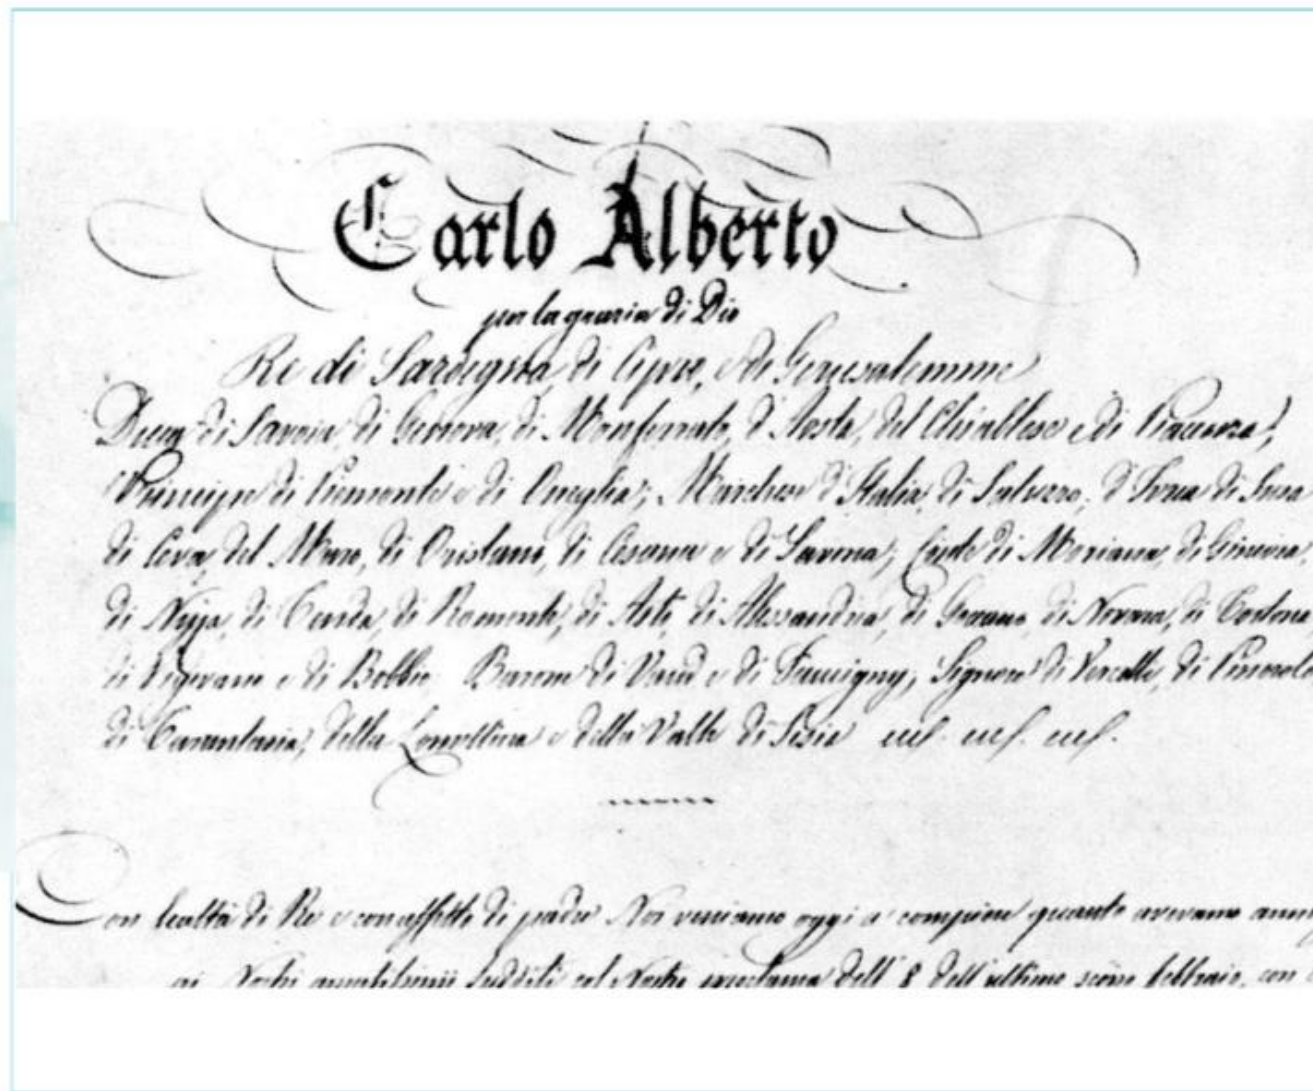 Carlo Alberto
per la grazia di Dio
Re di Sardegna, di Cipro, e di Gerusalemme
Duca di Savoia, di Genova, di Monferrato, d'Aosta, del Chiablese e di Piacenza;
Principe di Piemonte e di Oneglia; Marchese d'Italia, di Saluzzo, d'Ivrea, di Susa
di Ceva, del Maro, di Oristano, di Cesana e di Savona; Conte di Moriana, di Ginevra,
di Nizza, di Tenda, di Romonte, di Asti, di Alessandria, di Goceano, di Novara, di Tortona
di Vigevano e di Bobbio; Barone di Vaud e di Faucigny; Signore di Vercelli, di Pinerolo
di Tarantasia, della Lomellina e della Valle di Sesia ecc. ecc. ecc.
Con lealtà di Re e con affetto di padre Noi veniamo oggi a compiere quanto avevamo
ai Nostri amatissimi sudditi col Nostro proclama dell' 8 dell'ultimo scorso febbraio, con